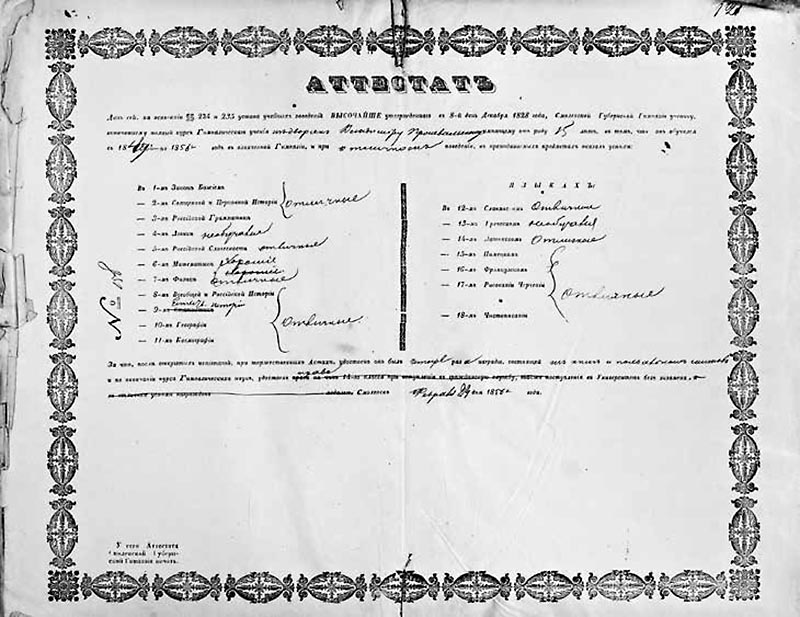 АТТЕСТАТЪ
Данъ сей, на основаніи §§ 234 и 235 устава учебныхъ заведеній ВЫСОЧАЙШЕ утвержденнаго въ 8-й день Декабря 1828 года, Смоленской Губернской Гимназіи ученику,
окончившему полный курсъ Гимназическаго ученія изъ дворянъ Пржевальскому имѣющему отъ роду 15 лѣтъ, въ томъ, что онъ обучался
съ 18 по 1856 годъ въ означенной Гимназіи, и при отличномъ поведеніи, въ преподаваемыхъ предметахъ оказалъ успѣхи:
ЯЗЫКАХЪ:
Въ 1-мъ Законѣ Божіемъ
— 2-мъ Священной и Церковной Исторіи отличные
— 3-мъ Россійской Грамматикѣ
— 4-мъ Логикѣ необучался
— 5-мъ Россійской Словесности отличные
— 6-мъ Математикѣ хорошіе
— 7-мъ Физикѣ хорошіе отличные
— 8-мъ Всеобщей и Россійской Исторіи
— 9-мъ Исторіи
— 10-мъ Географіи отличные
— 11-мъ Космографіи
Въ 12-мъ Славянскомъ отличные
— 13-мъ Греческомъ необучался
— 14-мъ Латинскомъ отличные
— 15-мъ Нѣмецкомъ
— 16-мъ Французскомъ
— 17-мъ Рисованіи Черченіи отличные
и
— 18-мъ Чистописаніи
№ 158
За что, послѣ открытыхъ испытаній, при торжественныхъ Актахъ, удостоенъ онъ былъ награды, состоящей изъ книгъ и похвальныхъ листовъ
и по окончаніи курса Гимназическихъ наукъ, удостоенъ права на чинъ 14-го класса при вступленіи въ гражданскую службу, также поступленія въ Университетъ безъ экзамена, а
Смоленскъ Февраля 29 дня 1856 года.
У сего Аттестата
Смоленской Губерн-
ской Гимназіи печать.